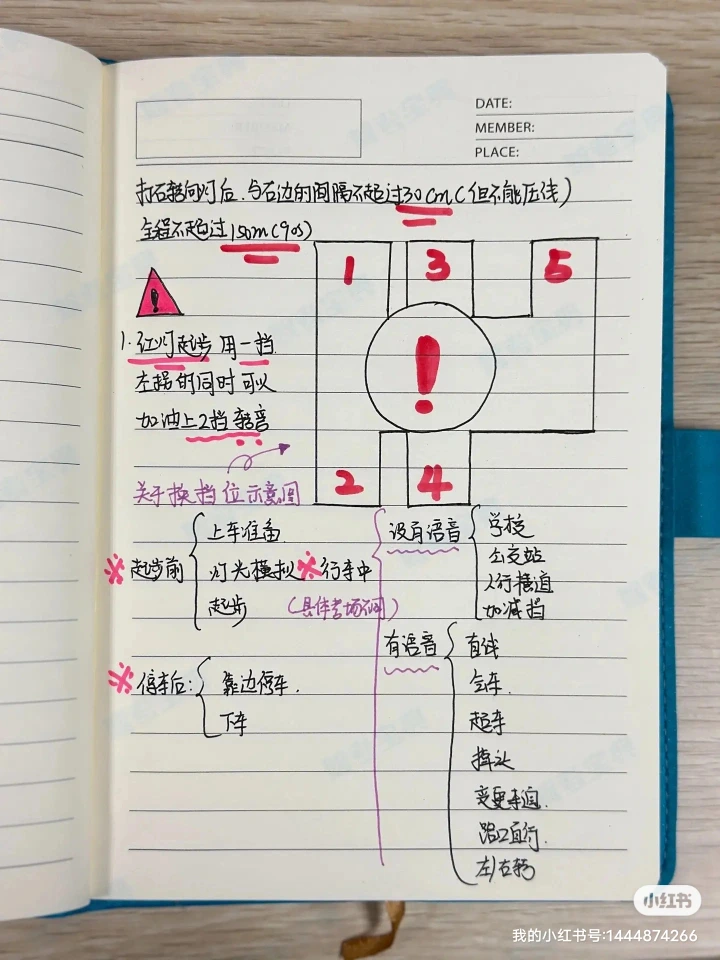 DATE:
MEMBER:
PLACE:
打右转向灯后.与右边的间隔不起过30cm(但不能压线)
全程不起过150m(90s)
1 3 5
!
1.红灯起步用一挡
左拐的同时可以
加油上2挡
!
关于换挡位示意图
2 4
※起步前
上车准备.
灯光模拟
起步
※行车中
(具体考场不同)
没有语音
学校
公交站
人行横道
加减挡
有语音
直线
会车.
超车
掉头
变更车道.
路口直行.
左/右转
※停车后:
靠边停车.
下车
小红书
我的小红书号:1444874266